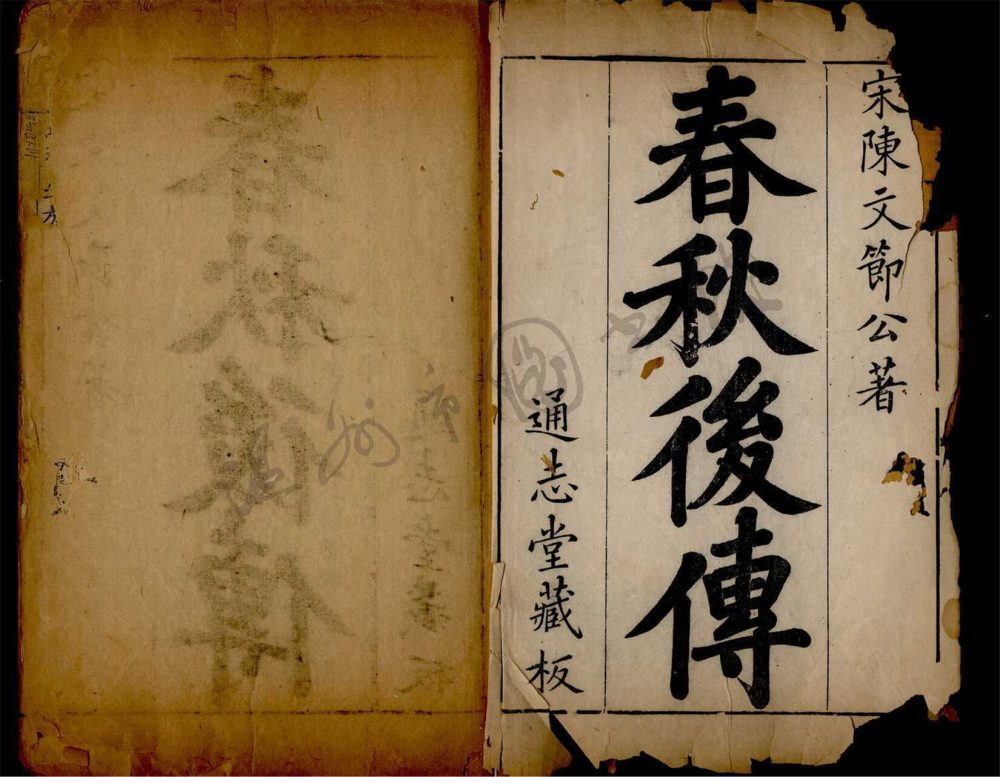 宋陳文節公著
春秋後傳
通志堂藏板